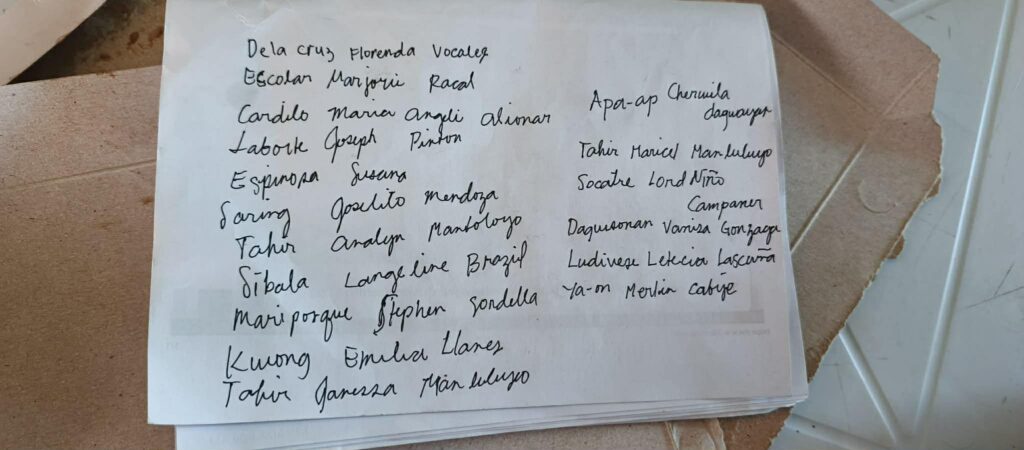 Dela cruz Florenda Vocales
Escolar Marjorie Racal
Cardilo Maria Angeli Alionar
Laborte Joseph Pinton
Espinosa Susana
Saring Joselito Mendoza
Tahir Analyn Mantoloyo
Sibala Langeline Brazil
Mariporque Stephen Sordella
Kwong Emilia Llanes
Tahir Janessa Manluluyo
Apa-ap Chermila
daguayan
Tahir Maricel Manluluyo
Socatre Lord Niño
Campaner
Daguisonan Vanisa Gonzaga
Ludivese Leticia Lascuña
Ya-on Merlan Cabije